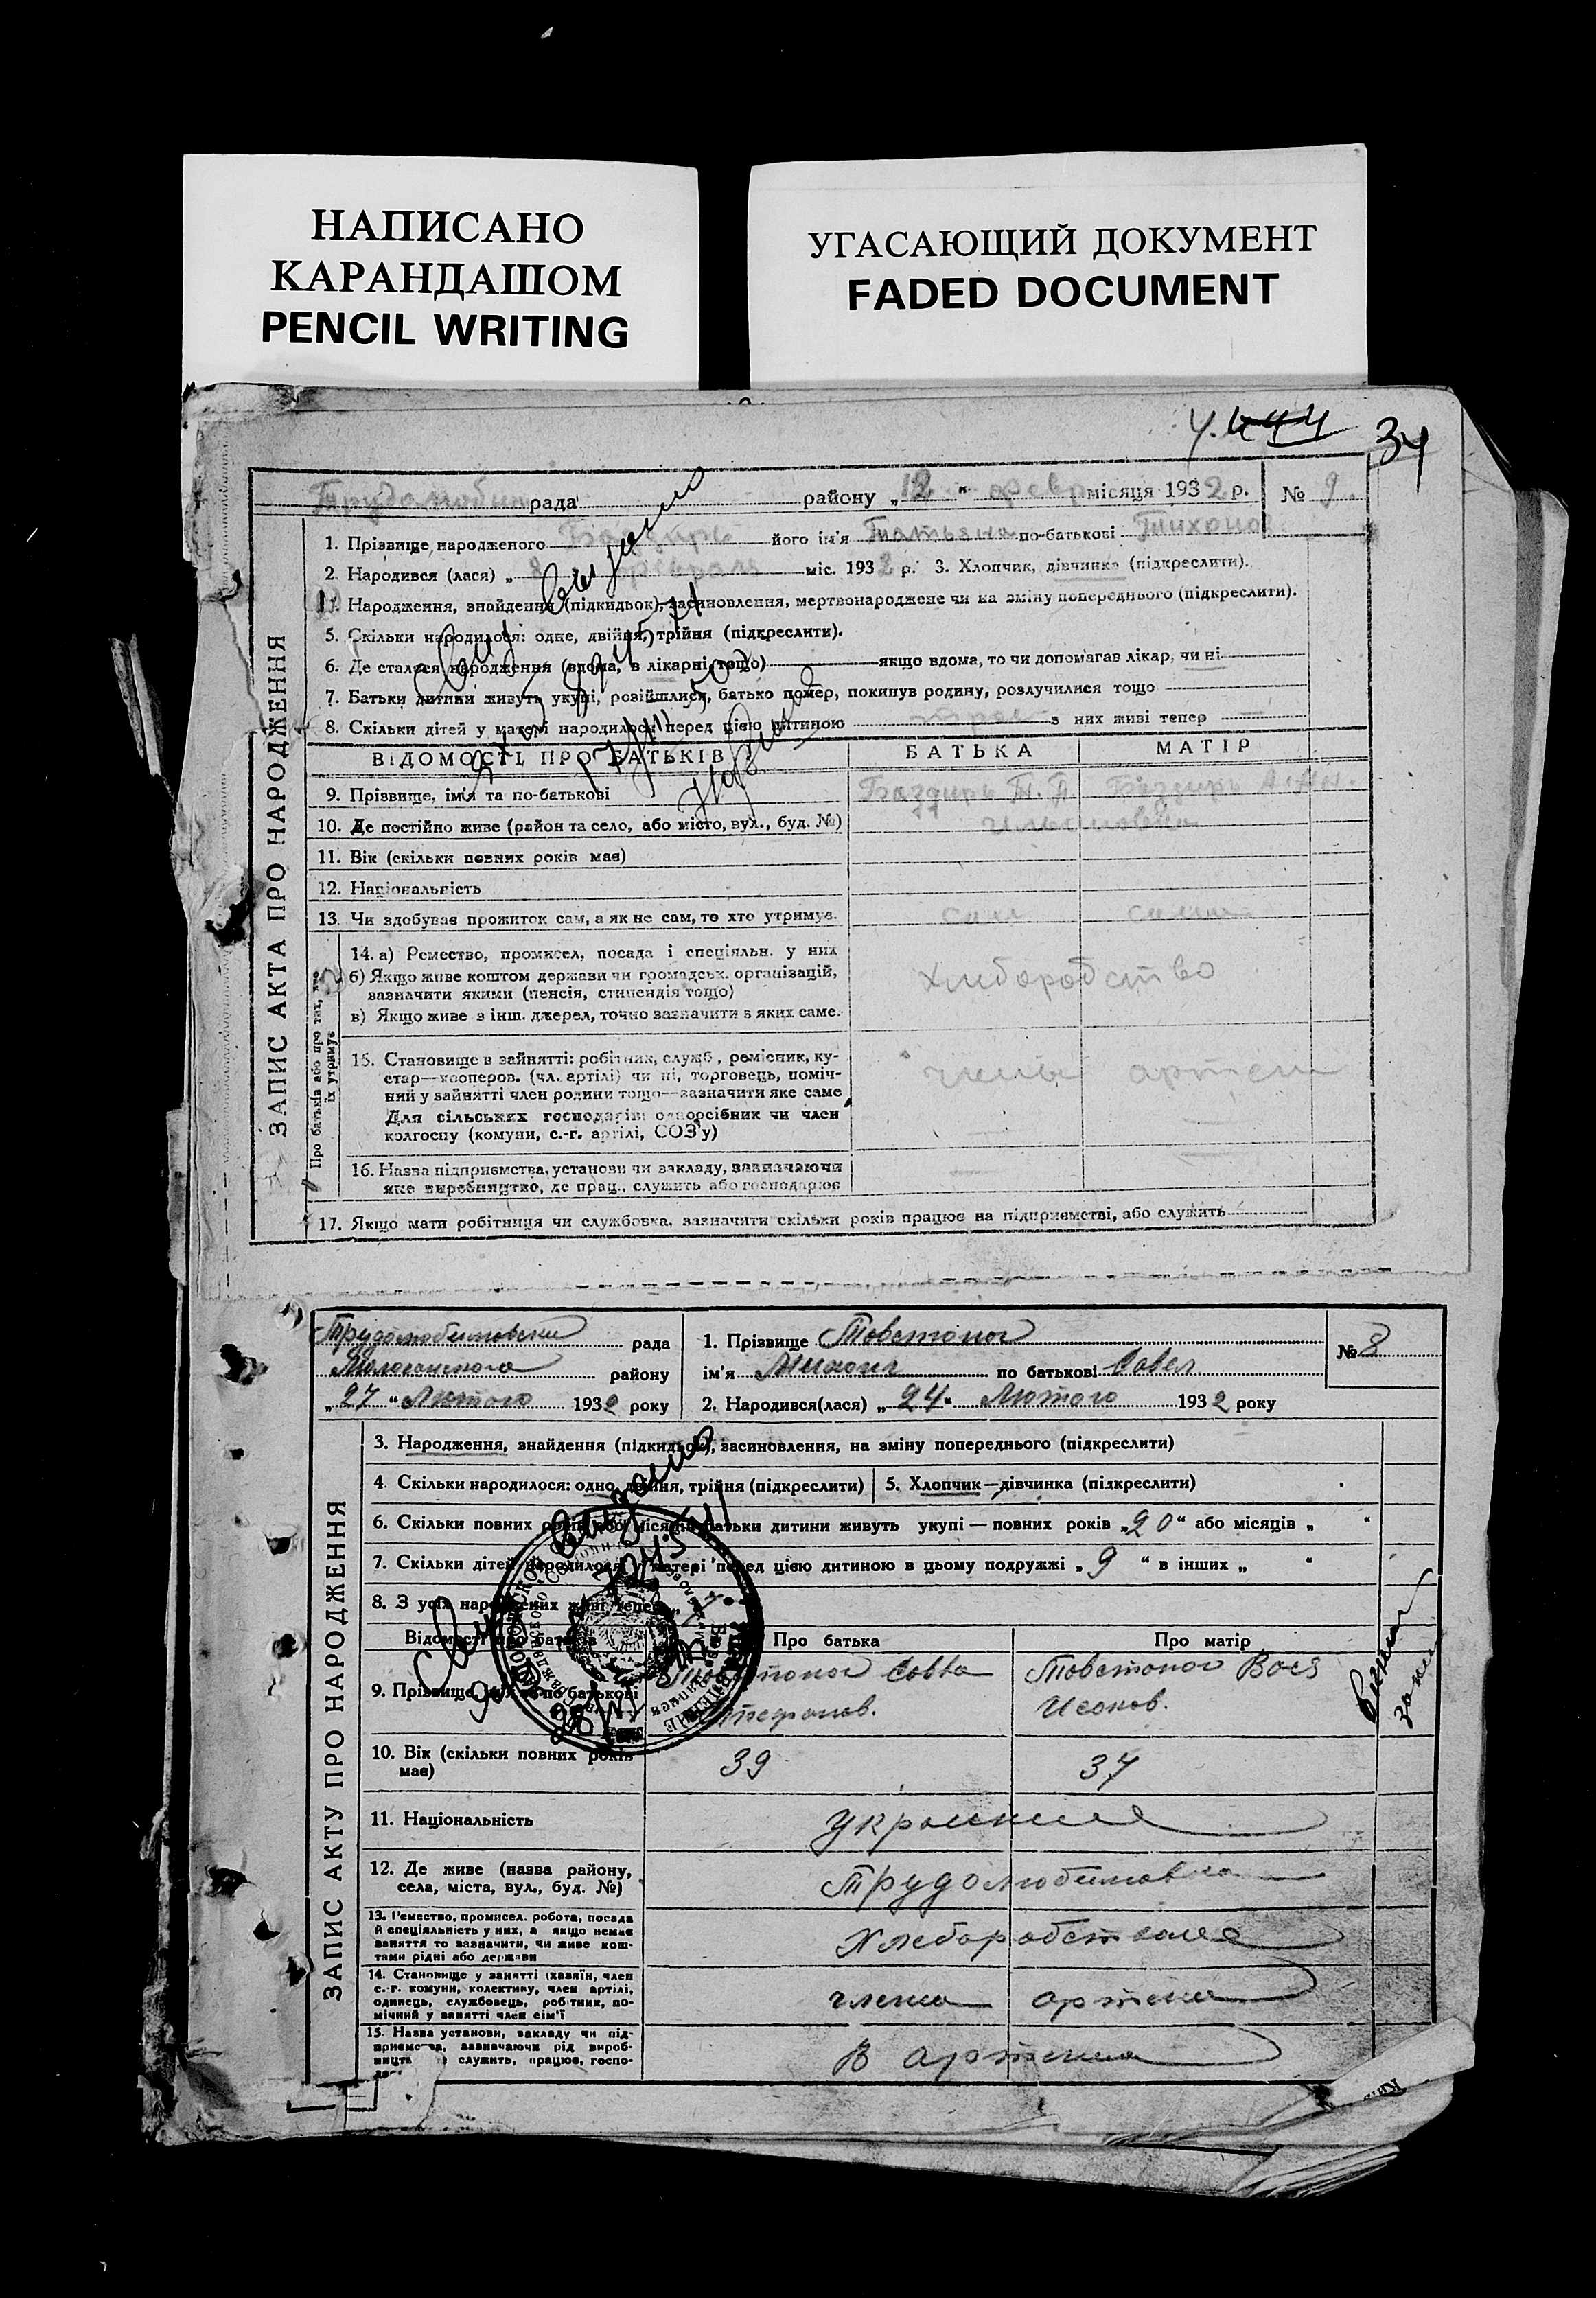 НАПИСАНО
КАРАНДАШОМ
PENCIL WRITING
УГАСАЮЩИЙ ДОКУМЕНТ
FADED DOCUMENT
34
ЗАПИС АКТА ПРО НАРОДЖЕННЯ
рада району „12“ февр місяця 1932 р. № 9.
1. Прізвище народженого Баздирь його ім'я Татьяна по-батькові Тихоно
2. Народився (лася) „8 февраля міс. 1932 р. 3. Хлопчик, дівчинка (підкреслити).
Народження, знайдення (підкидьок), засиновлення, мертвонароджене чи на зміну попереднього (підкреслити).
5. Скільки народилося: одне, двійня, трійня (підкреслити).
6. Де сталася народження (вдома, в лікарні тощо) якщо вдома, то чи допомагав лікар, чи ні
7. Батьки дитини живуть укупі, розійшлися, батько помер, покинув родину, розлучилися тощо
8. Скільки дітей у матері народилося перед цією дитиною з них живі тепер
ВІДОМОСТІ ПРО БАТЬКІВ БАТЬКА МАТІР
9. Прізвище, ім'я та по-батькові Баздирь Т. П. Баздирь
10. Де постійно живе (район та село, або місто, вул., буд. №)
11. Вік (скільки повних років має)
12. Національність
13. Чи здобуває прожиток сам, а як не сам, то хто утримує. сам сама
Про батьків або про тих, хто їх утримує
14. а) Ремество, промисел, посада і спеціяльн. у них
б) Якщо живе коштом держави чи громадськ. організацій,
зазначити якими (пенсія, стипендія тощо)
в) Якщо живе з інш. джерел, точно зазначити з яких саме.
хлиборобство
15. Становище в зайнятті: робітник, служб., ремісник, ку-
стар—кооперов. (чл. артілі) чи ні, торговець, поміч-
ний у зайнятті член родини тощо—зазначити яке саме
Для сільських господарів: одноосібник чи член
колгоспу (комуни, с.-г. артілі, СОЗ'у)
члены артели
16. Назва підприємства, установи чи закладу, зазначаючи
яке виробництво, де прац., служить або господарює
17. Якщо мати робітниця чи службовка, зазначити скільки років працює на підприємстві, або служить
ЗАПИС АКТУ ПРО НАРОДЖЕННЯ
Трудолюбимовски рада
Молочанского району
„27“ Лютого 1932 року
1. Прізвище Товстоног
ім'я Михаил по батькові Савел
2. Народився(лася) „24“ Лютого 1932 року
№ 8
3. Народження, знайдення (підкидьок), засиновлення, на зміну попереднього (підкреслити)
4. Скільки народилося: одно, двійня, трійня (підкреслити) 5. Хлопчик—дівчинка (підкреслити)
6. Скільки повних років або місяців батьки дитини живуть укупі — повних років „20“ або місяців „ “
7. Скільки дітей народилося у матері перед цією дитиною в цьому подружжі „9“ в інших „ “
8. З усіх народжених живі тепер
Відомості про батьків Про батька Про матір
9. Прізвище, ім'я та по батькові
Товстоног Савва
Стефанов.
Товстоног Вася
Исаков.
10. Вік (скільки повних років
має)
39 37
11. Національність украинцы
12. Де живе (назва району,
села, міста, вул., буд. №)
Трудолюбимовка
13. Ремество, промисел. робота, посада
й спеціяльність у них, а якщо немає
заняття то зазначити, чи живе кош-
тами рідні або держави
14. Становище у занятті (хазяїн, член
с.-г. комуни, колективу, член артілі,
одинець, службовець, робітник, по-
мічний у занятті член сім'ї
члена артели
15. Назва установи, закладу чи під-
приємства, зазначаючи рід вироб-
ницт служить, працює, госпо-
В артели